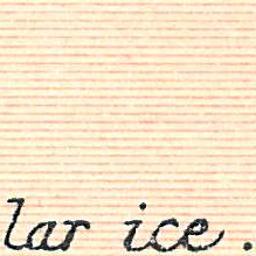 lar ice.